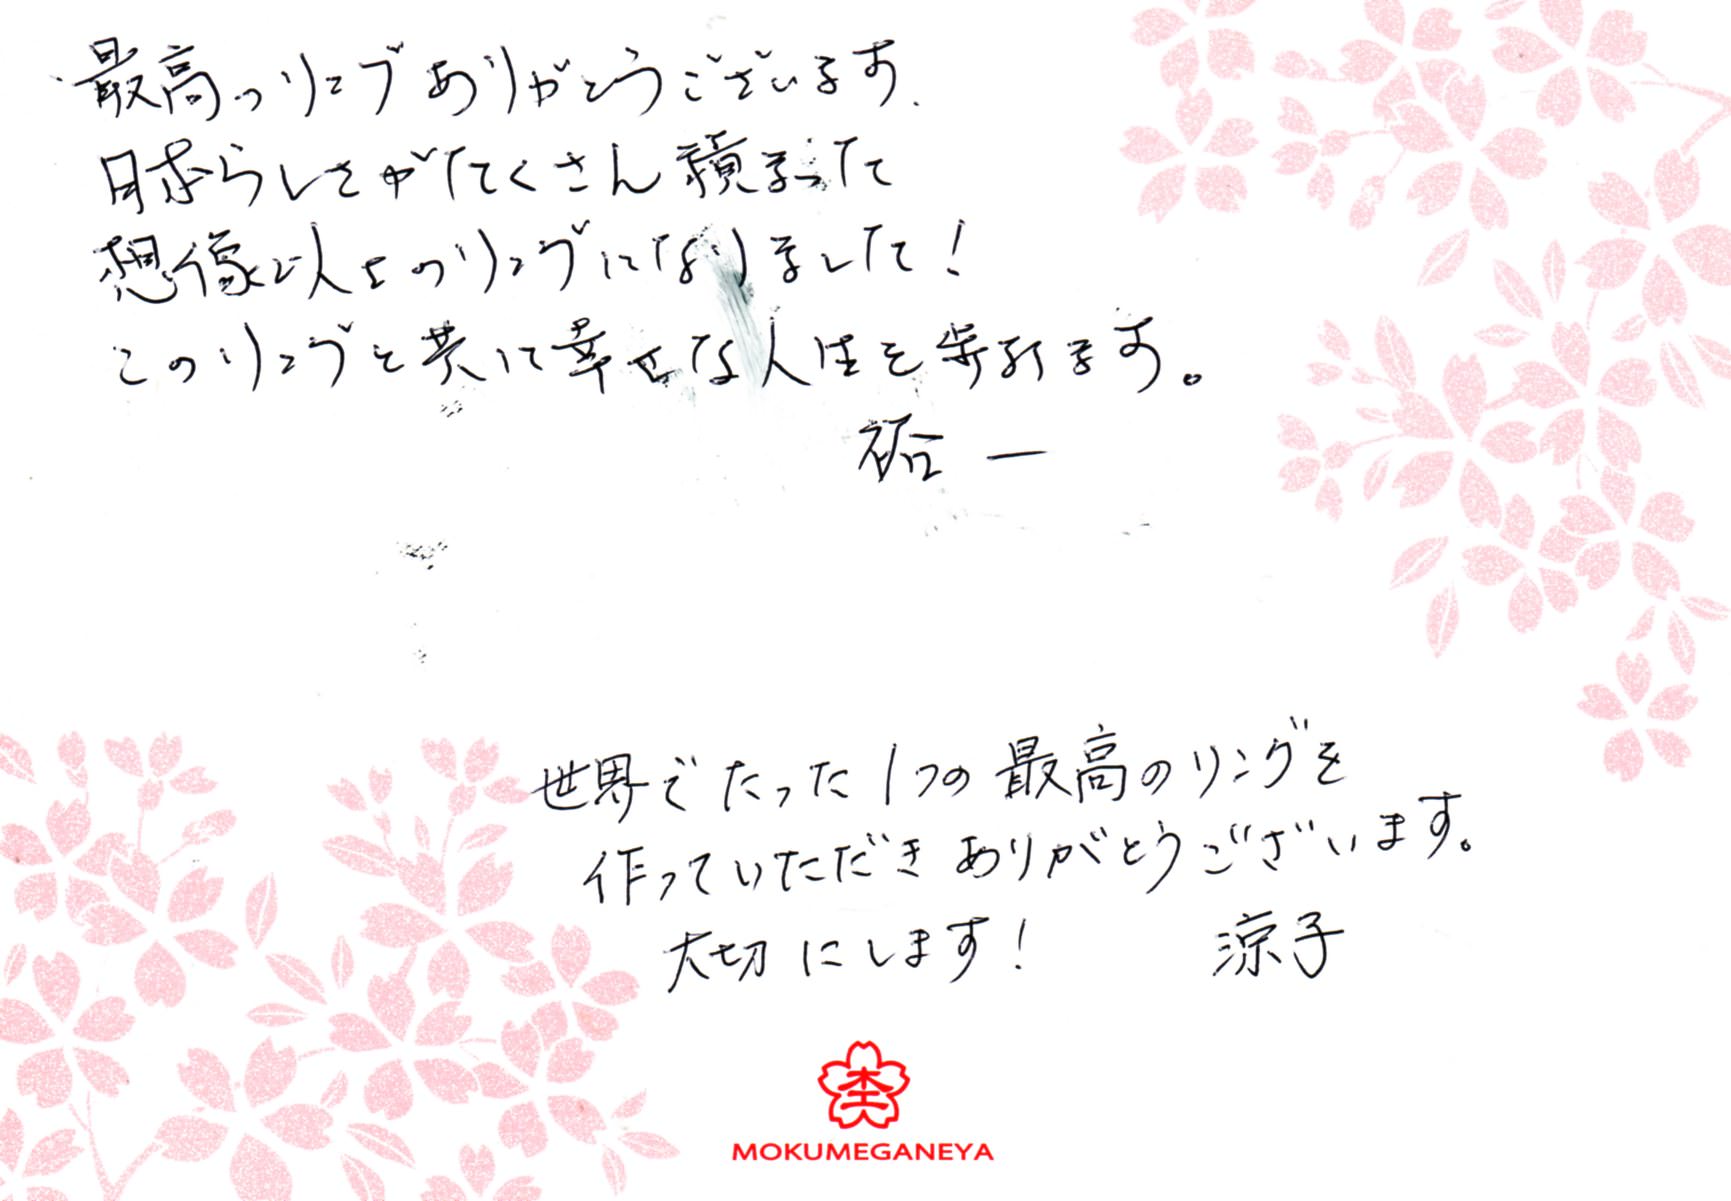 最高のリングありがとうございます.
日本らしさがたくさん積まった
想像以上のリングになりました!
このリングと共に幸せな人生を歩みます。
祐一
世界でたった1つの最高のリングを
作っていただきありがとうございます。
大切にします!
涼子
MOKUMEGANEYA